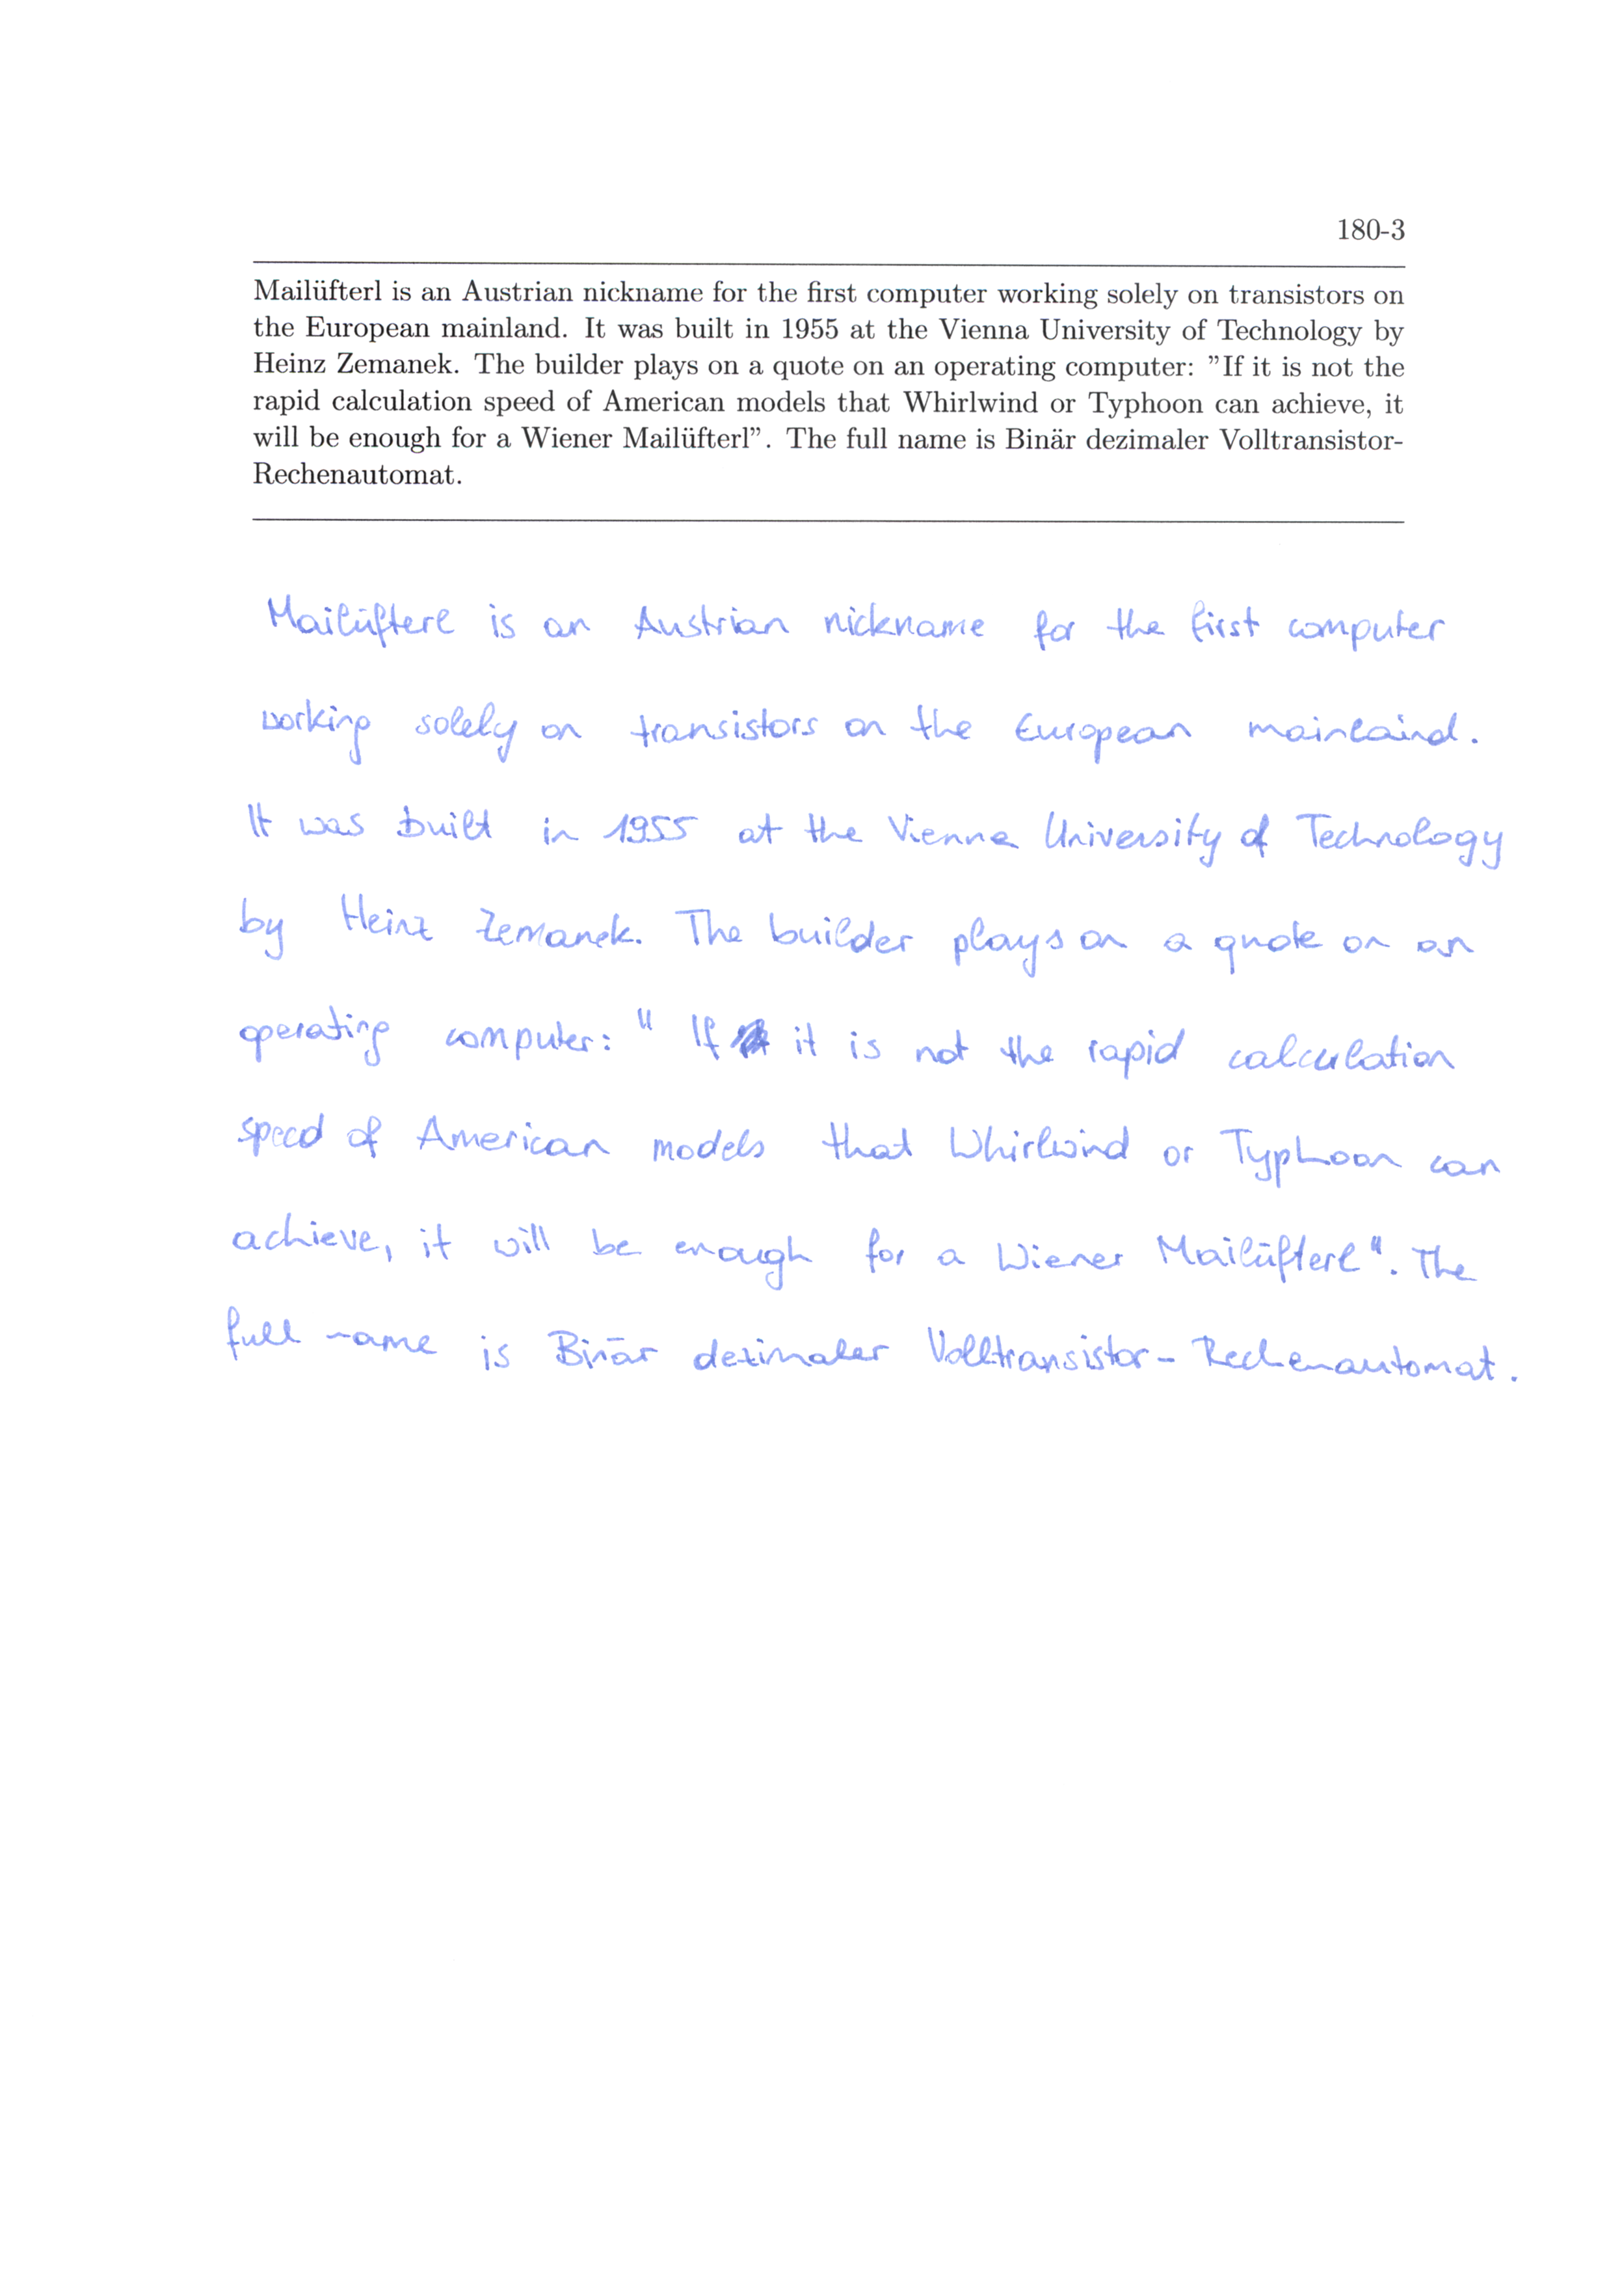 180-3
Mailüfterl is an Austrian nickname for the first computer working solely on transistors on
the European mainland. It was built in 1955 at the Vienna University of Technology by
Heinz Zemanek. The builder plays on a quote on an operating computer: ”If it is not the
rapid calculation speed of American models that Whirlwind or Typhoon can achieve, it
will be enough for a Wiener Mailüfterl”. The full name is Binär dezimaler Volltransistor-
Rechenautomat.
Mailüfterl is an Austrian nickname for the first computer
working solely on transistors on the European mainlaind.
It was built in 1955 at the Vienna University of Technology
by Heinz Zemanek. The builder plays on a quote on an
operating computer: " If it is not the rapid calculation
speed of American models that Whirlwind or Typhoon can
achieve, it will be enough for a Wiener Mailüfterl". The
full name is Binär dezimaler Volltransistor-Rechenautomat.